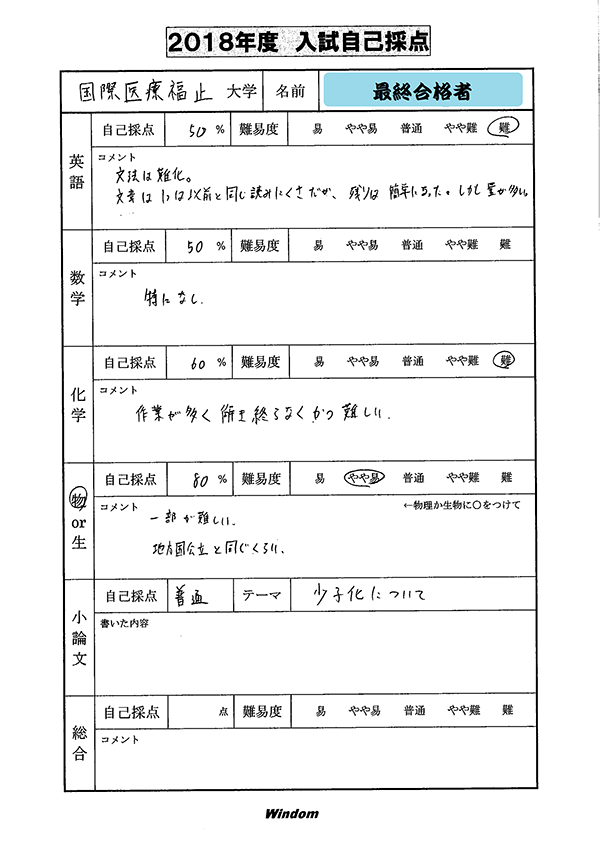 2018年度 入試自己採点
国際医療福止 大学 名前 最終合格者
英語 自己採点 50 % 難易度 易 やや易 普通 やや難 難
コメント
文法は難化。
文章は1つは以前と同じ読みにくさだが、残りは簡単になった。しかし量が多い。
数学 自己採点 50 % 難易度 易 やや易 普通 やや難 難
コメント
特になし.
化学 自己採点 60 % 難易度 易 やや易 普通 やや難 難
コメント
作業が多く 終らなくかつ 難しい.
物or生 自己採点 80 % 難易度 易 やや易 普通 やや難 難
コメント ←物理か生物に○をつけて
一部が難しい.
地方国公立と同じくらい.
小論文 自己採点 普通 テーマ 少子化について
書いた内容
総合 自己採点 点 難易度 易 やや易 普通 やや難 難
コメント
Windom